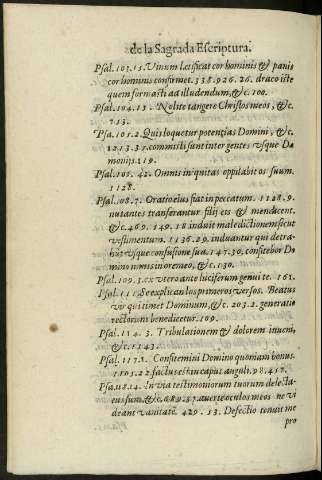 de la Sagrada Escriptura.
Psal. 103. 15. Vinum lætificat cor hominis & panis
cor hominis confirmet. 338. 926. 26. draco iste
quem formasti ad illudendum, &c. 100.
Psal. 104. 15. Nolite tangere Christos meos, &c.
713.
Psa. 105. 2. Quis loquetur potentias Domini, &c.
1213. 35. commisti sunt inter gentes vsque De
monijs. 219.
Psal. 106. 42. Omnis iniquitas oppilabit os suum.
1128.
Psal. 108. 7. Oratio eius fiat in peccatum. 1128. 9.
nutantes transferantur filij eius & mendicent.
&c. 469. 149. 18 induit maledictionem sicut
vestimentum. 1136. 29. induantur qui detra-
hut vsque confusione sua. 147. 30. confitebor Do
mino nimis in ore meo, &c. 130.
Psal. 109. 3. ex vtero ante luciferum genui te. 161.
Psal. 111. Se explican los primeros versos. Beatus
vir qui timet Dominum, &c. 203. 2. generatio
rectorum benedicetur. 109.
Psal. 114. 3. Tribulationem & dolorem inueni,
&c. 1143.
Psal. 117. 1. Confitemini Domino quoniam bonus.
1105. 22. factus est in caput anguli. 98. 417.
Psa. 118. 14. In via testimoniorum tuorum delecta-
tus sum, &c. 289. 37. auerte oculos meos ne vi
deant vanitatē. 429. 53. Defectio tenuit me
pro